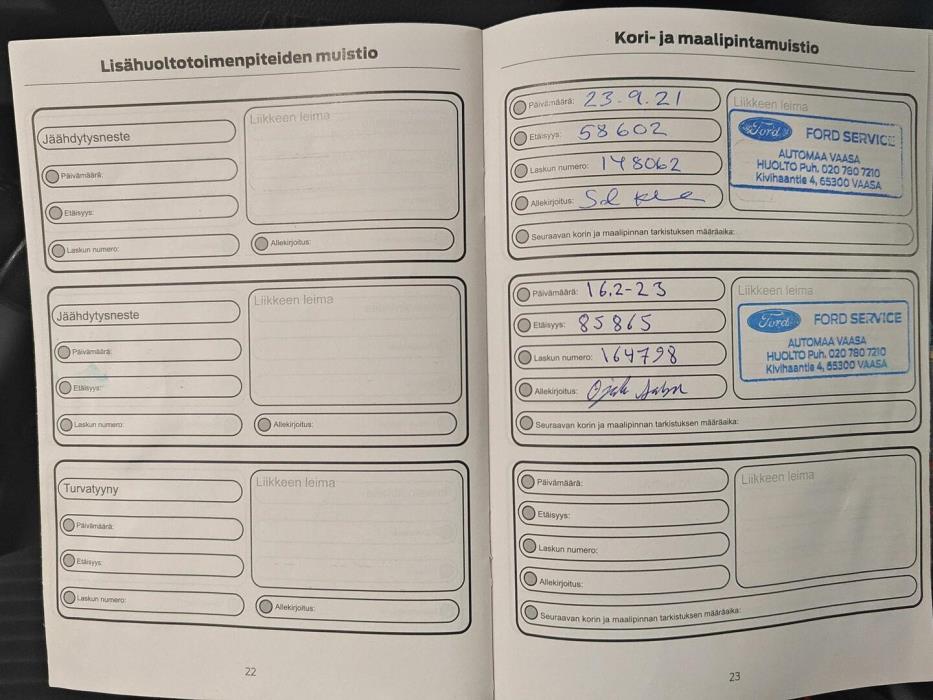 Lisähuoltotoimenpiteiden muistio
Jäähdytysneste
Päivämäärä:
Etäisyys:
Laskun numero:
Liikkeen leima
Allekirjoitus:
Jäähdytysneste
Päivämäärä:
Etäisyys:
Laskun numero:
Liikkeen leima
Allekirjoitus:
Turvatyyny
Päivämäärä:
Etäisyys:
Laskun numero:
Liikkeen leima
Allekirjoitus:
22
Kori- ja maalipintamuistio
Päivämäärä: 23.9.21
Etäisyys: 58602
Laskun numero: 148062
Allekirjoitus:
Seuraavan korin ja maalipinnan tarkistuksen määräaika:
Liikkeen leima
Ford FORD SERVICE
AUTOMAA VAASA
HUOLTO Puh. 020 780 7210
Kivihaantie 4, 65300 VAASA
Päivämäärä: 16.2-23
Etäisyys: 85865
Laskun numero: 164798
Allekirjoitus:
Seuraavan korin ja maalipinnan tarkistuksen määräaika:
Liikkeen leima
Ford FORD SERVICE
AUTOMAA VAASA
HUOLTO Puh. 020 780 7210
Kivihaantie 4, 65300 VAASA
Päivämäärä:
Etäisyys:
Laskun numero:
Allekirjoitus:
Seuraavan korin ja maalipinnan tarkistuksen määräaika:
Liikkeen leima
23